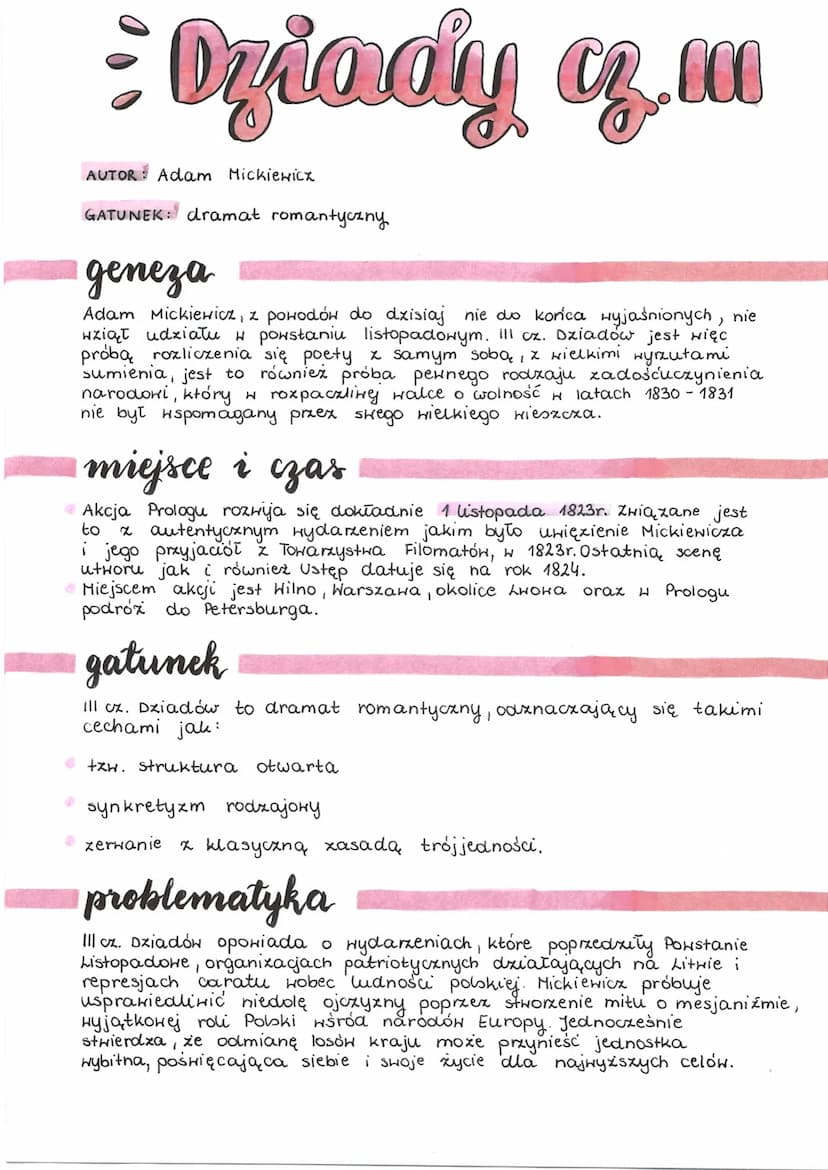 Dziady cz. III
AUTOR: Adam Mickiewicz
GATUNEK: dramat romantyczny
geneza
Adam Mickiewicz, z powodów do dzisiaj nie do końca wyjaśnionych, nie
wziął udziału w powstaniu listopadowym. III cz. Dziadów jest więc
próbą rozliczenia się poety z samym sobą, z wielkimi wyrzutami
sumienia, jest to również próba pewnego rodzaju zadośćuczynienia
narodowi, który w rozpaczliwej walce o wolność w latach 1830 - 1831
nie był wspomagany przez swego wielkiego wieszcza.
miejsce i czas
Akcja Prologu rozwija się dokładnie 1 listopada 1823r. Związane jest
to z autentycznym wydarzeniem jakim było uwięzienie Mickiewicza
i jego przyjaciół z Towarzystwa Filomatów, w 1823r. Ostatnią scenę
utworu jak i również Ustęp datuje się na rok 1824.
Miejscem akcji jest Wilno, Warszawa, okolice Lwowa oraz w Prologu
podróż do Petersburga.
gatunek
III cz. Dziadów to dramat romantyczny, odznaczający się takimi
cechami jak:
tzw. struktura otwarta
synkretyzm rodzajowy
zerwanie z klasyczną zasadą trójjedności.
problematyka
III cz. Dziadów opowiada o wydarzeniach, które poprzedziły Powstanie
Listopadowe, organizacjach patriotycznych działających na Litwie i
represjach caratu wobec ludności polskiej. Mickiewicz próbuje
usprawiedliwić niedolę ojczyzny poprzez stworzenie mitu o mesjaniźmie,
wyjątkowej roli Polski wśród narodów Europy. Jednocześnie
stwierdza, że odmianę losów kraju może przynieść jednostka
wybitna, poświęcająca siebie i swoje życie dla najwyższych celów.